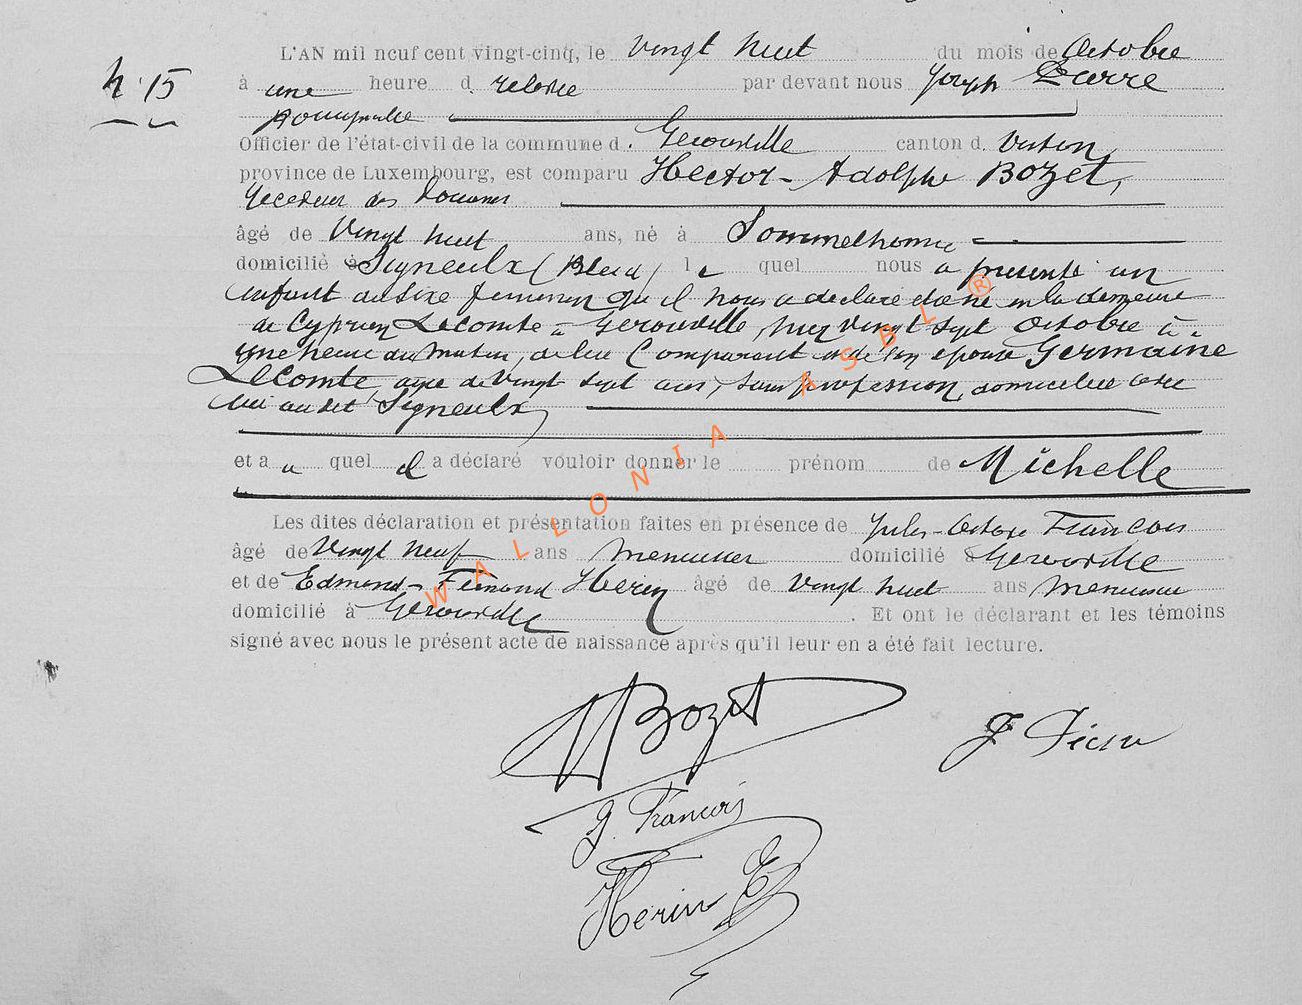 L'AN mil neuf cent vingt-cinq, le vingt huit du mois de Octobre
N° 15
à une heure d relevée par devant nous Joseph Pierre
Officier de l'état-civil de la commune d. Gerouville canton d. Virton
province de Luxembourg, est comparu Hector-Adolphe Bozet,
receveur des Douanes
âgé de vingt huit ans, né à Sommethonne
domicilié à Signeulx (Bleid) l e quel nous a présenté un
enfant du sexe feminin qu'il nous a déclaré être né en la demeure
de Cyprien Lecomte à Gerouville, hier vingt sept Octobre à
une heure du matin, de lui Comparant et de son épouse Germaine
Lecomte, agée de vingt sept ans, sans profession, domiciliée avec
lui au dit Signeulx
et a u quel il a déclaré vouloir donner le prénom de Michelle
Les dites déclaration et présentation faites en présence de Jules-Octave François
âgé de vingt neuf ans menuisier domicilié à Gerouville
et de Edmond-Fernand Herin âgé de vingt huit ans menuisier
domicilié à Gerouville. Et ont le déclarant et les témoins
signé avec nous le présent acte de naissance après qu'il leur en a été fait lecture.
HBozet
J. François
Herin E
WALLONIA ASBL ®